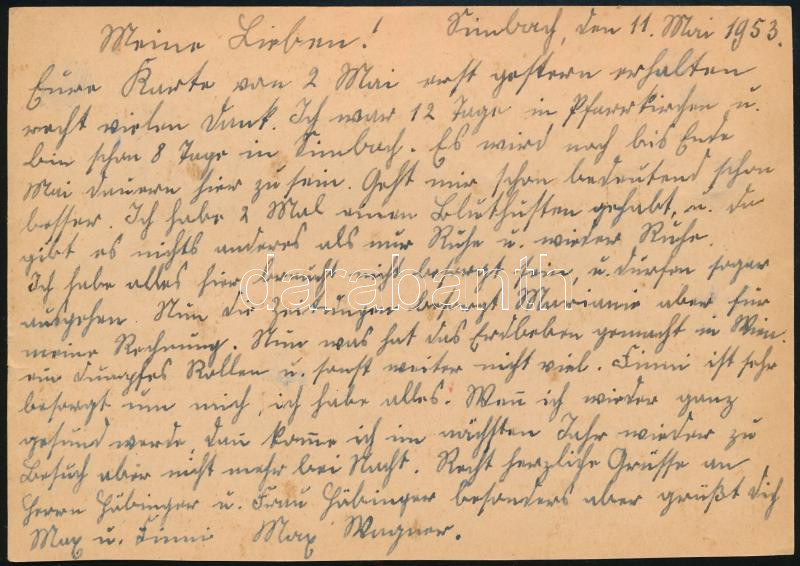 Simbach, den 11. Mai 1953.
Meine Lieben!
Eure Karte von 2 Mai erst gestern erhalten
recht vielen Dank. Ich war 12 Tage in Pfarrkirchen u.
bin schon 8 Tage in Simbach. Es wird noch bis Ende
Mai dauern hier zu sein. Geht mir schon bedeutend schon
besser. Ich habe 2 Mal einen Bluthusten gehabt, u. da
gibt es nichts anderes als nur Ruhe u. wieder Ruhe.
Ich habe alles hier, braucht nicht besorgt sein, u. dürfen sogar
ausgehen. Nun die Zeitungen besorgt Marianie aber für
meine Rechnung. Nun was hat das Erdbeben gemacht in Wien.
ein dumpfes Rollen u. sonst weiter nicht viel. Finni ist sehr
besorgt um mich, ich habe alles. Wenn ich wieder ganz
gesund werde dann komme ich im nächsten Jahr wieder zu
Besuch aber nicht mehr bei Nacht. Recht herzliche Grüsse an
Herrn Höbinger u. Frau Höbinger besonders aber grüßt Dich
Max u. Finni Max Wagner.
darabanth